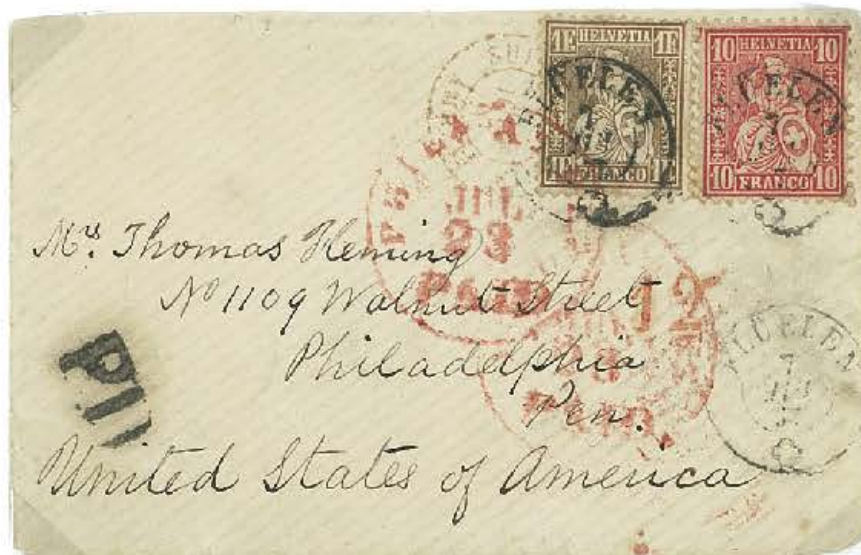 1F HELVETIA 1F
1F FRANCO 1F
10 HELVETIA 10
10 FRANCO 10
FLUELEN
7
FLUELEN
7
JUL
23
PAID
12
Mrs. Thomas Fleming
No 1109 Walnut Street
Philadelphia
Pen.
United States of America
FLUELEN
7